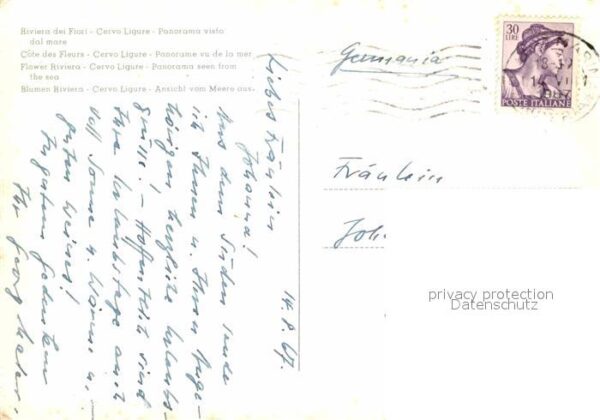 Riviera dei Fiori - Cervo Ligure - Panorama visto
dal mare
Côte des Fleurs - Cervo Ligure - Panorame vu de la mer
Flower Riviera - Cervo Ligure - Panorama seen from
the sea
Blumen Riviera - Cervo Ligure - Ansicht vom Meere aus
14.8.67.
Liebes Fräulein
Johanna!
Aus dem Süden sende
ich Ihnen u. Ihren Ange-
hörigen herzliche Urlaubs-
grüsse. - Hoffentlich sind
Ihre Urlaubstage auch
voll Sonne u. Wärme u.
guten Weines!
In gutem Gedenken
Ihr Georg
Germania
30
LIRE
POSTE ITALIANE
Fräulein
Joh
privacy protection
Datenschutz